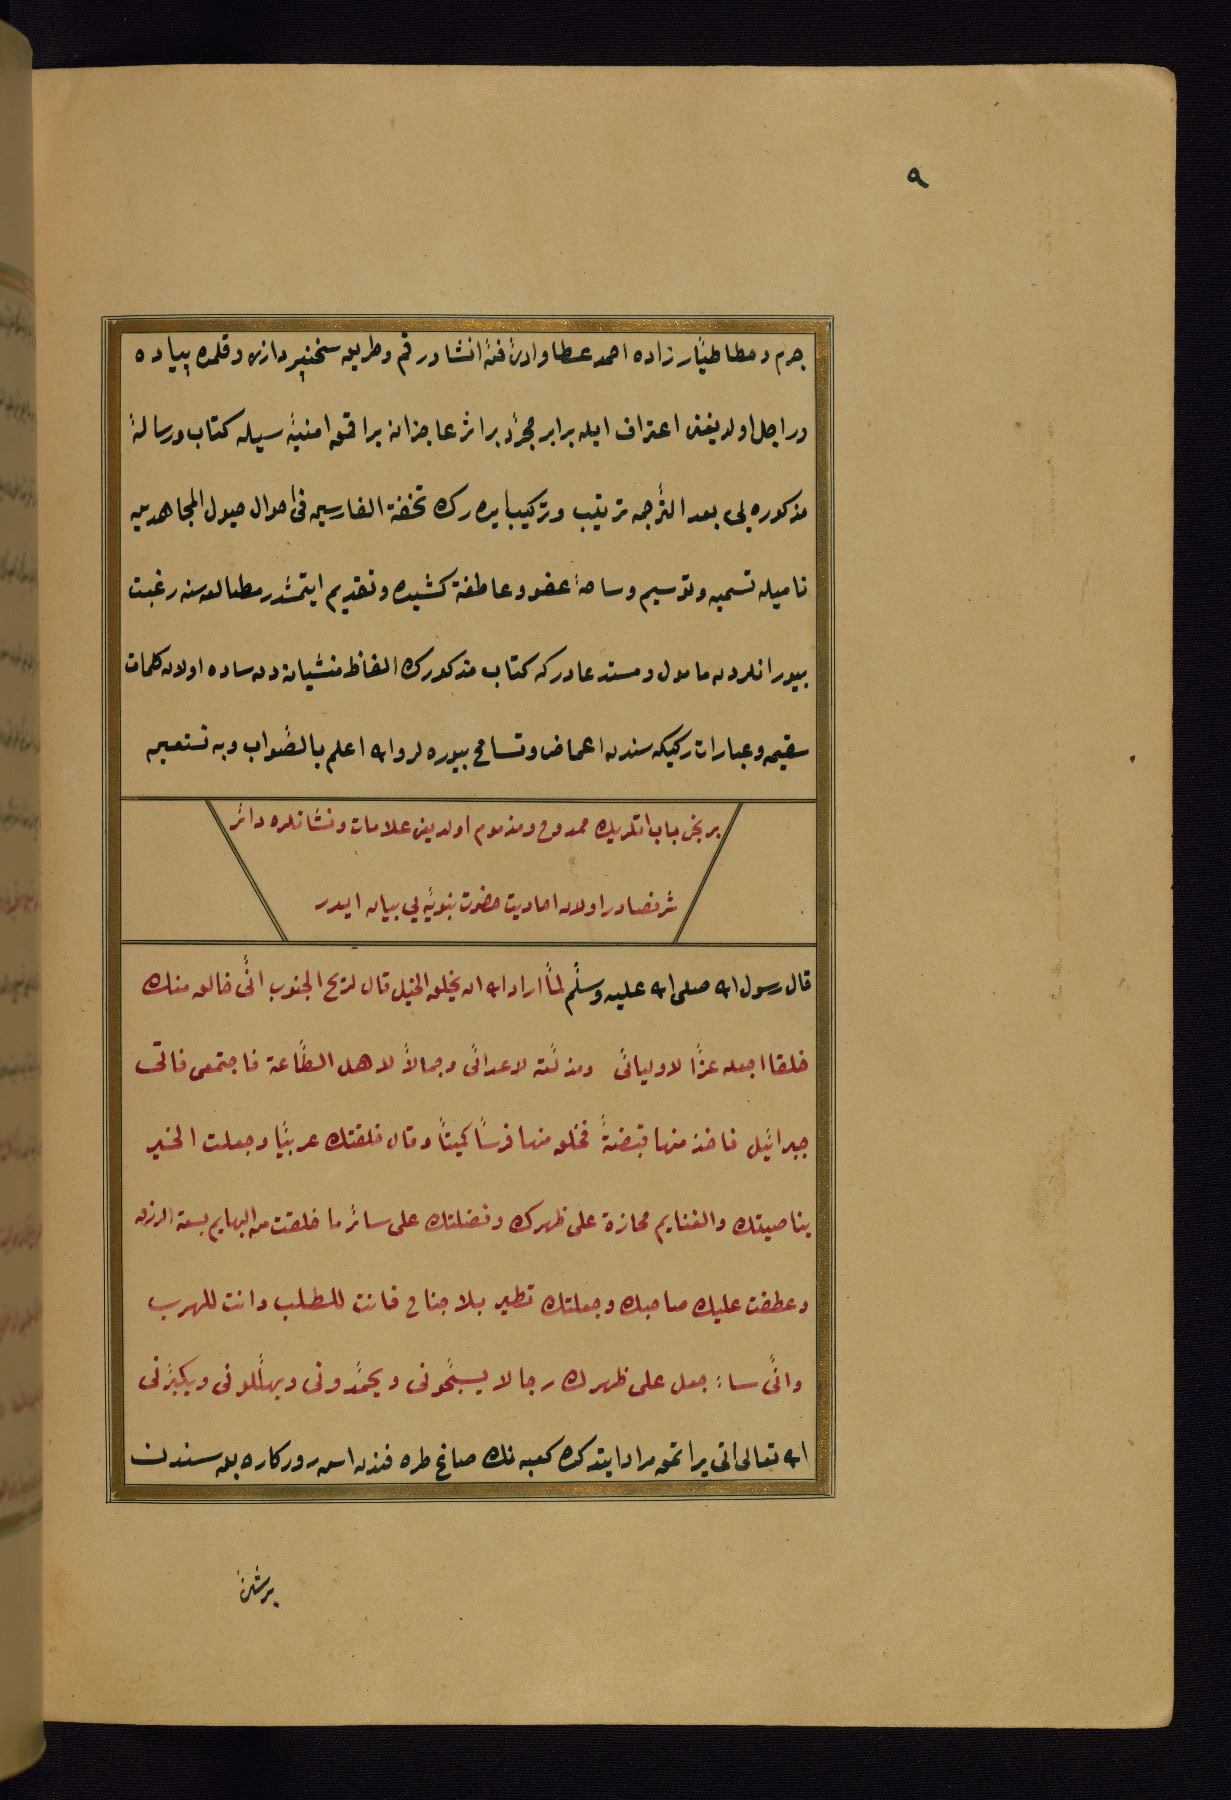 ٩
جرم و خطا طيار زاده احمد عطا وادئ فنّ انشا ورقم وطريق سخنپردازى وقلمده پياده
و راجل اولديغنى اعتراف ايله برابر مجرّد بر اثر عاجزانه براقمق امنيّه سيله كتاب ورسالۀ
مذكوره يى بعد التّرجمه ترتيب وتركيب ايده رك تحفة الفارسين فى احوال خيول المجاهدين
ناميله تسميه وتوسيم وساحۀ عفو وعاطفته كشيده وتقديم ايتمشدر مطالعه سنه رغبت
بيورانلردن مامول ومستدعادركه كتاب مذكورك الفاظ منشيانه دن ساده اولان كلمات
سقيمه وعبارات ركيكه سندن اغماض وتسامح بيوره لر والله اعلم بالصّواب وبه نستعين
برنجى باب اتلريك ممدوح ومذموم اولديغى علامات ونشانلره دائر
شرفصادر اولان احاديث حضرت نبويّه يى بيان ايدر
قال رسول الله صلى الله عليه وسلّم لمّا اراد الله ان يخلق الخيل قال لريح الجنوب انّى خالق منك
خلقا اجعله عزّا لاوليائى ومذلّة لاعدائى وجمالاً لاهل الطّاعة فاجتمعى فاتى
جبرائيل فاخذ منها قبضةً فخلق منها فرسًا كميتًا وقال خلقتك عربيًّا وجعلت الخير
بناصيتك والغنايم محازة على ظهرك وفضلتك على سائر ما خلقت من البهايم بسعة الرزق
وعطفت عليك صاحبك وجعلتك تطير بلا جناح فانت للطلب وانت للهرب
وانّى ساجعل على ظهرك رجالا يسبّحونى ويحمّدونى ويهلّلونى ويكبّرنى
الله تعالى اتى يراتمق مراد ايتدكده كعبه نك صاغ طرفندن اسن روزكاره بعده سندن